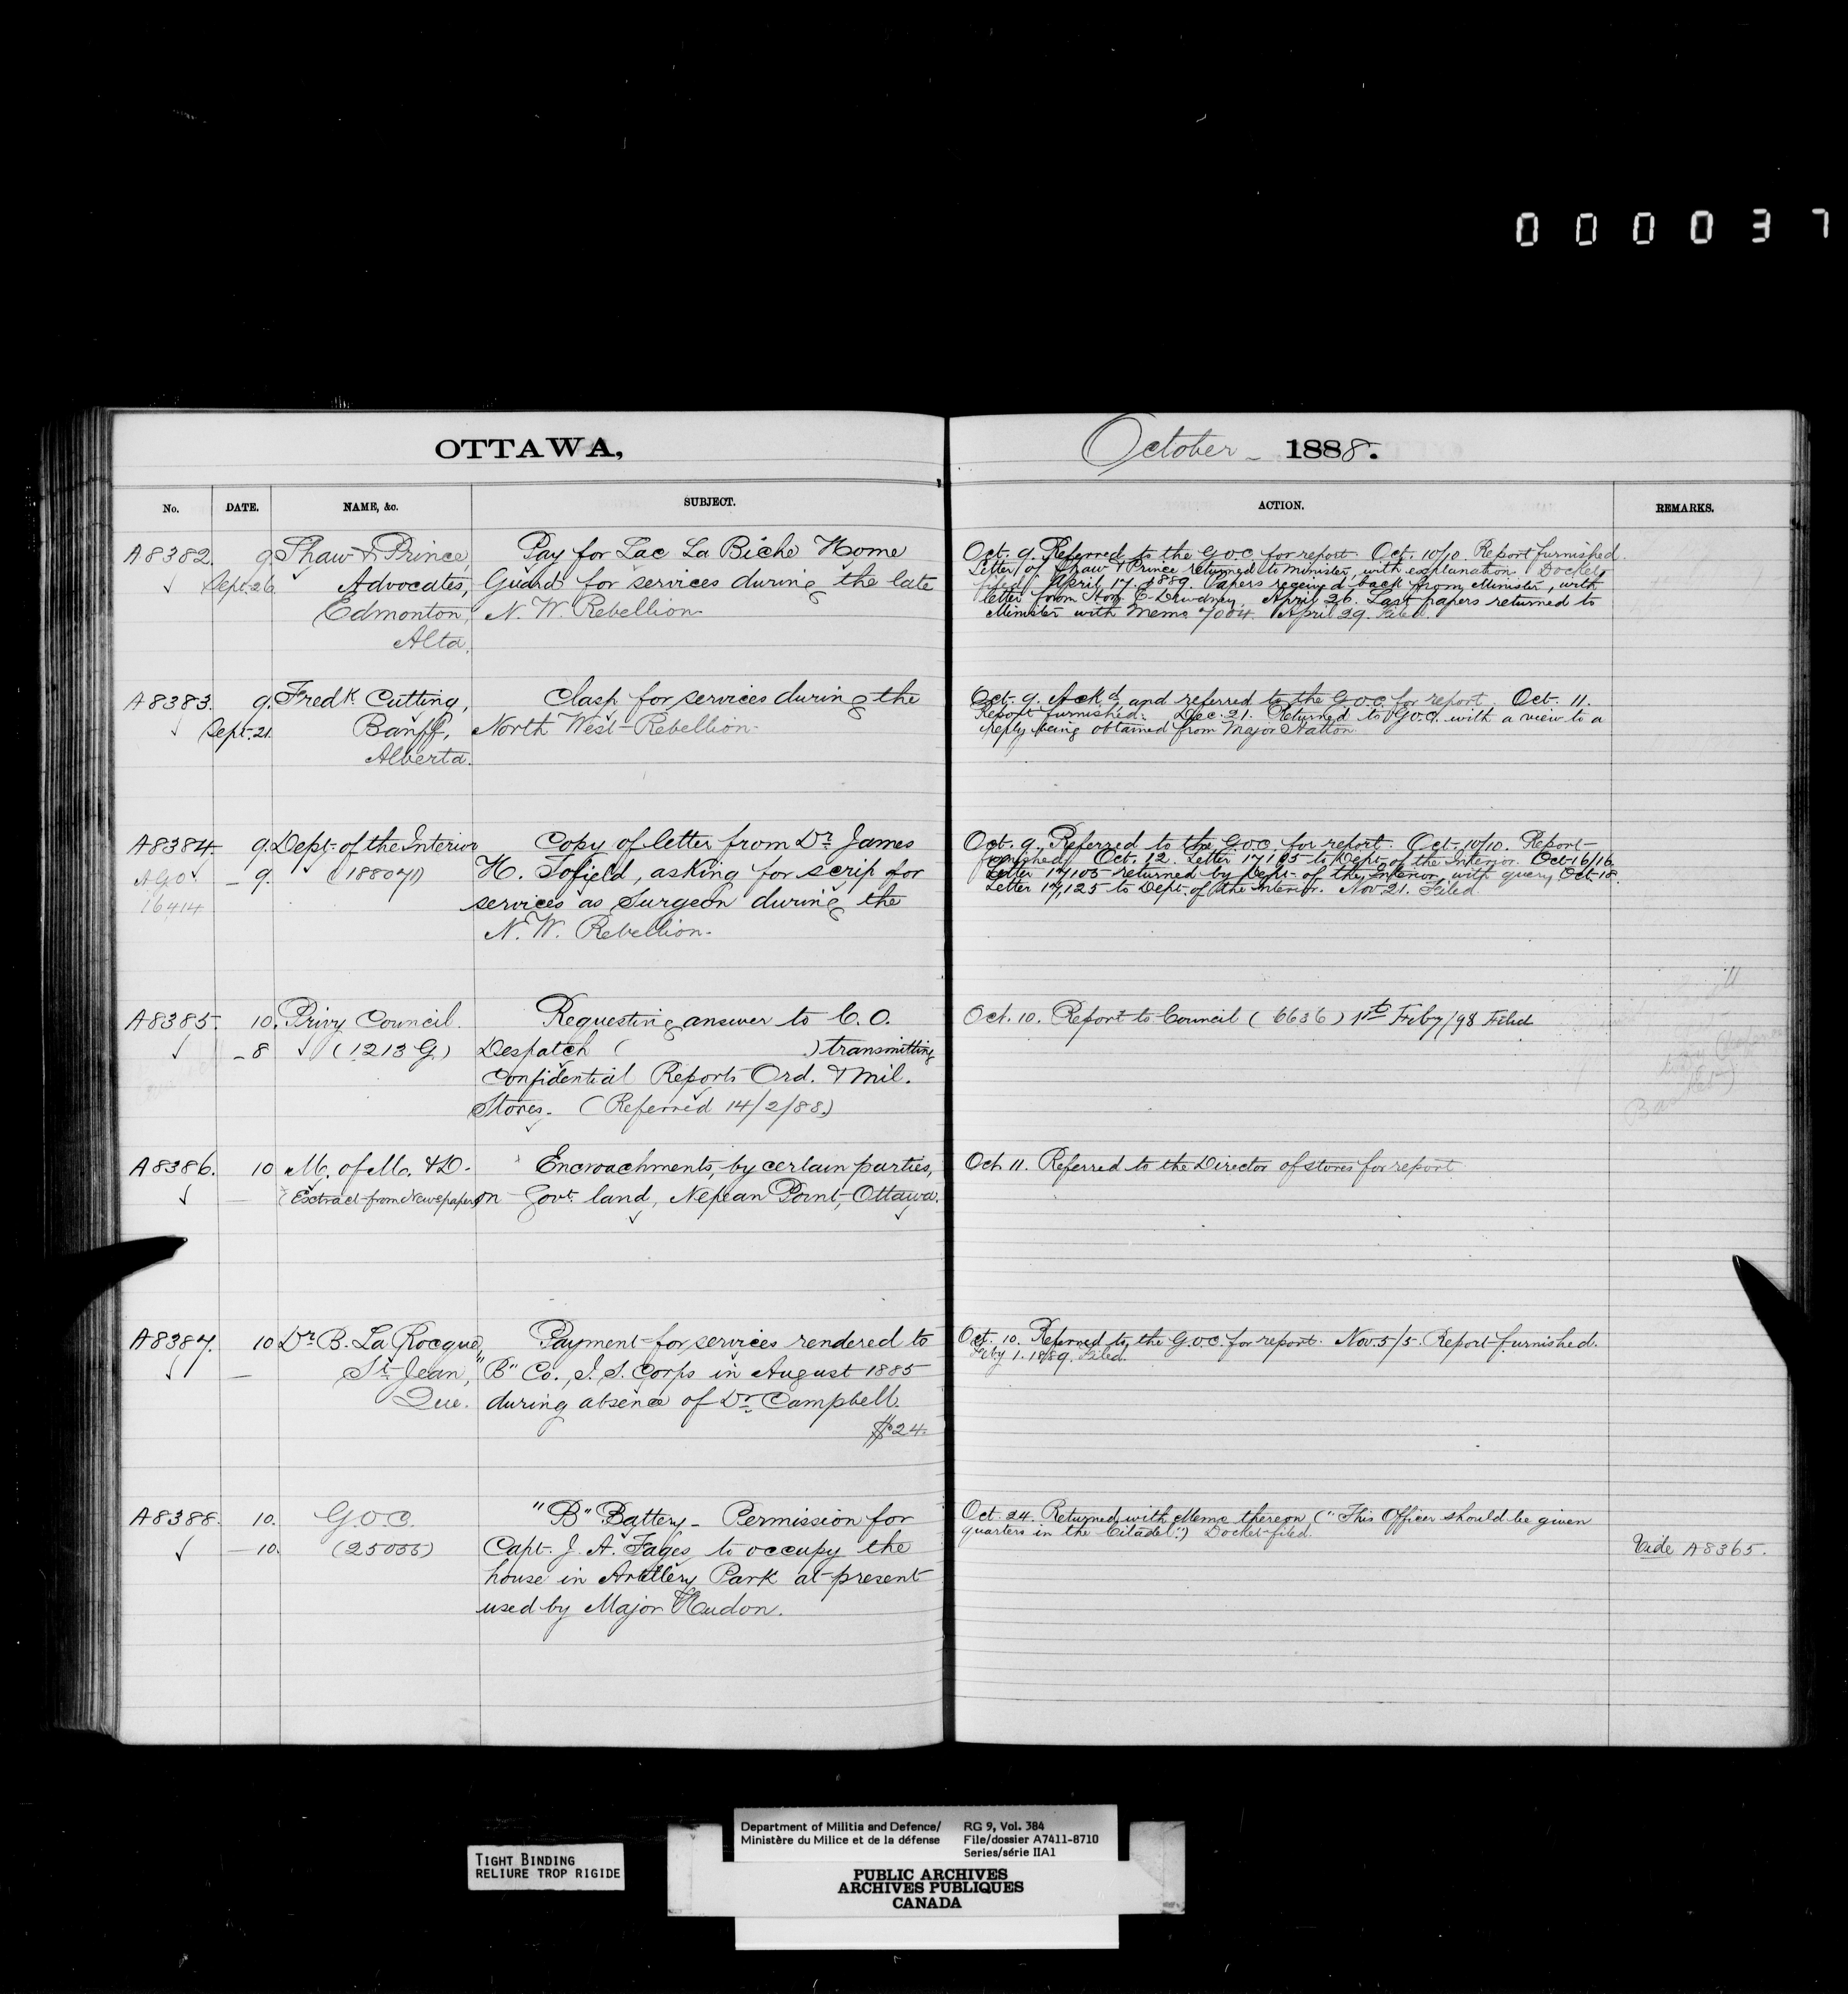 0 0 0 0 3 7
OTTAWA,
October 1888.
No. DATE. NAME, &c. SUBJECT. ACTION. REMARKS.
A8382. 9. Shaw & Prince, Pay for Lac La Biche Home
Sept. 26. Advocates, Guard for services during the late
Edmonton, N. W. Rebellion
Alta.
Oct. 9. Referred to the G.O.C. for report. Oct. 10/10. Report furnished.
Letter of Shaw & Prince returned to Minister, with explanation. Docket
filed. April 17. 1889. Papers received back from Minister, with
letter from Hon. E. Dewdney. April 26. Last papers returned to
Minister with Memo 7004. April 29. Filed.
A8383. 9. Fredk. Cutting, Clasp for services during the
Sept. 21. Banff, North West Rebellion.
Alberta.
Oct. 9. Ackd. and referred to the G.O.C. for report. Oct. 11.
Report furnished. Dec. 21. Returned to G.O.C. with a view to a
reply being obtained from Major Hatton.
A8384. 9. Dept. of the Interior Copy of letter from Dr. James
A.G.O. - 9. (188071) H. Tofield, asking for scrip for
16414 services as Surgeon during the
N. W. Rebellion.
Oct. 9. Referred to the G.O.C. for report. Oct. 10/10. Report
furnished. Oct. 12. Letter 17105 to Dept. of the Interior. Oct. 16/16.
Letter 17105 returned by Dept. of the Interior, with query. Oct. 18.
Letter 17,125 to Dept. of the Interior. Nov. 21. Filed.
A8385. 10. Privy Council. Requesting answer to C.O.
- 8 (1213 G) Despatch ( ) transmitting
Confidential Reports Ord. & Mil.
Stores. (Referred 14/2/88.)
Oct. 10. Report to Council (6636) 1st Feby/98 Filed
A8386. 10 M. of M. & D. Encroachments, by certain parties,
- (Extract from Newspaper) on Govt. land, Nepean Point, Ottawa.
Oct. 11. Referred to the Director of Stores for report
A8387. 10 Dr. B. La Rocque, Payment for services rendered to
- St. Jean, "B" Co., I. S. Corps in August 1885
Que. during absence of Dr. Campbell.
$24.
Oct. 10. Referred to the G.O.C. for report. Nov. 5/5. Report furnished.
Feby 1. 1889. Filed.
A8388. 10. G.O.C. "B" Battery - Permission for
- 10. (25055) Capt. J. A. Fages to occupy the
house in Artillery Park at present
used by Major Hudon.
Oct. 24. Returned with Memo thereon ("This Officer should be given
quarters in the Citadel.") Docket filed.
Vide A8365.
TIGHT BINDING
RELIURE TROP RIGIDE
Department of Militia and Defence/
Ministère du Milice et de la défense
RG 9, Vol. 384
File/dossier A7411-8710
Series/série IIA1
PUBLIC ARCHIVES
ARCHIVES PUBLIQUES
CANADA